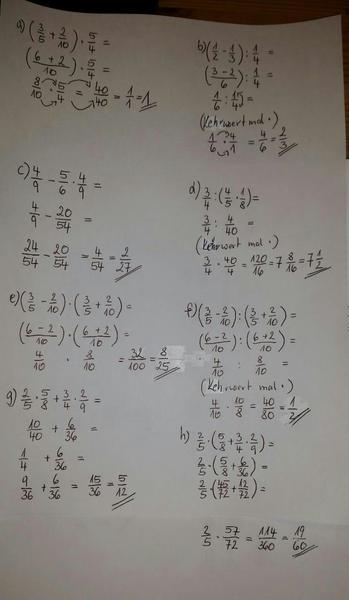 a) (3/5 + 2/10) · 5/4 =
((6 + 2)/10) · 5/4 =
8/10 · 5/4 = 40/40 = 1/1 = 1
b) (1/2 - 1/3) : 1/4 =
((3 - 2)/6) : 1/4 =
1/6 : 1/4 =
(Kehrwert mal ·)
1/6 · 4/1 = 4/6 = 2/3
c) 4/9 - 5/6 · 4/9 =
4/9 - 20/54 =
24/54 - 20/54 = 4/54 = 2/27
d) 3/4 : (4/5 · 1/8) =
3/4 : 4/40 =
(Kehrwert mal ·)
3/4 · 40/4 = 120/16 = 7 8/16 = 7 1/2
e) (3/5 - 2/10) · (3/5 + 2/10) =
((6 - 2)/10) · ((6 + 2)/10) =
4/10 · 8/10 = 32/100 = 8/25
f) (3/5 - 2/10) : (3/5 + 2/10) =
((6 - 2)/10) : ((6 + 2)/10) =
4/10 : 8/10 =
(Kehrwert mal ·)
4/10 · 10/8 = 40/80 = 1/2
g) 2/5 · 5/8 + 3/4 · 2/9 =
10/40 + 6/36 =
1/4 + 6/36 =
9/36 + 6/36 = 15/36 = 5/12
h) 2/5 · (5/8 + 3/4 · 2/9) =
2/5 · (5/8 + 6/36) =
2/5 · (45/72 + 12/72) =
2/5 · 57/72 = 114/360 = 19/60